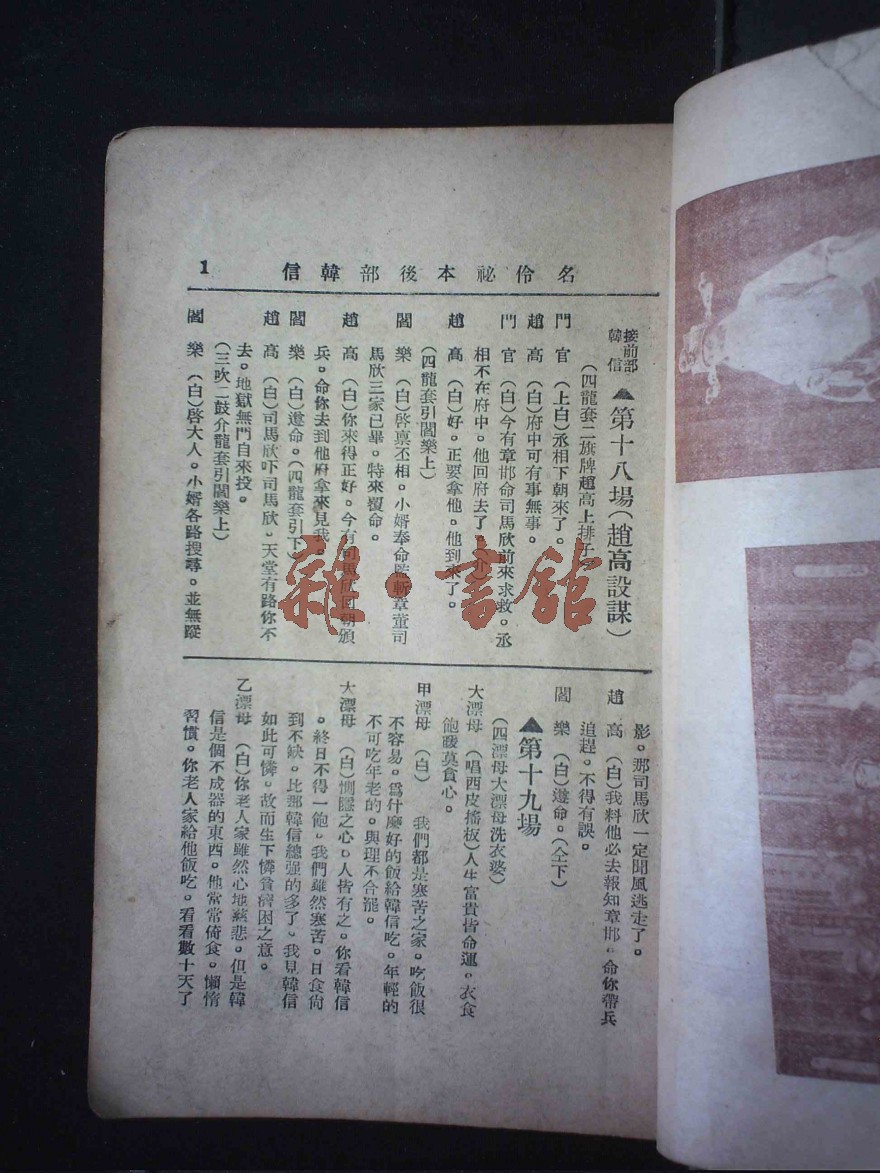 名伶祕本後部韓信
1
接前部
韓信
▲第十八場(趙高設謀)
(四龍套二旗牌趙高上排子)
門 官 (上白)丞相下朝來了。
趙 高 (白)府中可有事無事。
門 官 (白)今有章邯命司馬欣前來求救。丞
相不在府中。他回府去了。(介)
趙 高 (白)好。正要拿他。他到來了。
(四龍套引閻樂上)
閻 樂 (白)啓禀丕相。小婿奉命監斬章董司
馬欣三家已畢。特來覆命。
趙 高 (白)你來得正好。今有司馬欣回朝頒
兵。命你去到他府拿來見我。
閻 樂 (白)遵命。(四龍套引下)
趙 高 (白)司馬欣吓司馬欣。天堂有路你不
去。地獄無門自來投。
(三吹二鼓介龍套引閻樂上)
閻 樂 (白)啓大人。小婿各路搜尋。並無蹤
影。那司馬欣一定聞風逃走了。
趙 高 (白)我料他必去報知章邯。命你帶兵
追趕。不得有誤。
閻 樂 (白)遵命。(仝下)
▲第十九場
(四漂母大漂母洗衣婆)
大漂母 (唱西皮搖板)人生富貴皆命運。衣食
飽暖莫貪心。
甲漂母 (白) 我們都是寒苦之家。吃飯很
不容易。爲什麼好的飯給韓信吃。年輕的
不可吃年老的。與理不合罷。
大漂母 (白)惻隱之心。人皆有之。你看韓信
。終日不得一飽。我們雖然寒苦。日食尙
到不缺。比那韓信總强的多了。我見韓信
如此可憐。故而生下憐貧濟困之意。
乙漂母 (白)你老人家雖然心地慈悲。但是韓
信是個不成器的東西。他常常倚食。懶惰
習慣。你老人家給他飯吃。看看數十天了
雜·書館